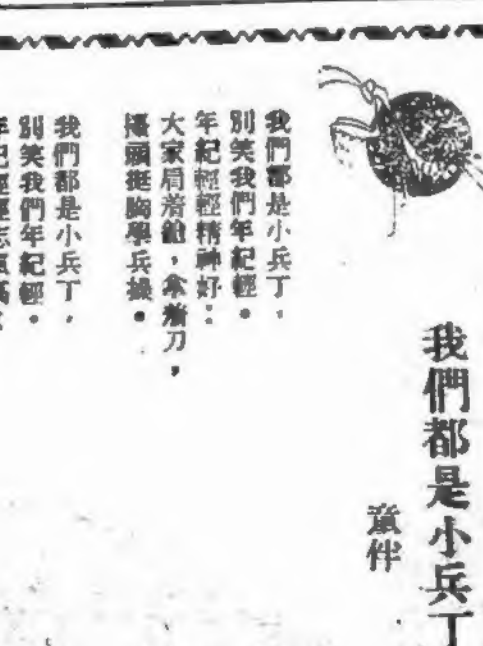 我們都是小兵丁
童伴
我們都是小兵丁，
別笑我們年紀輕。
年紀輕輕精神好：
大家肩着鎗，拿着刀，
擡頭挺胸學兵操。
我們都是小兵丁，
別笑我們年紀輕。
年紀輕輕志氣高